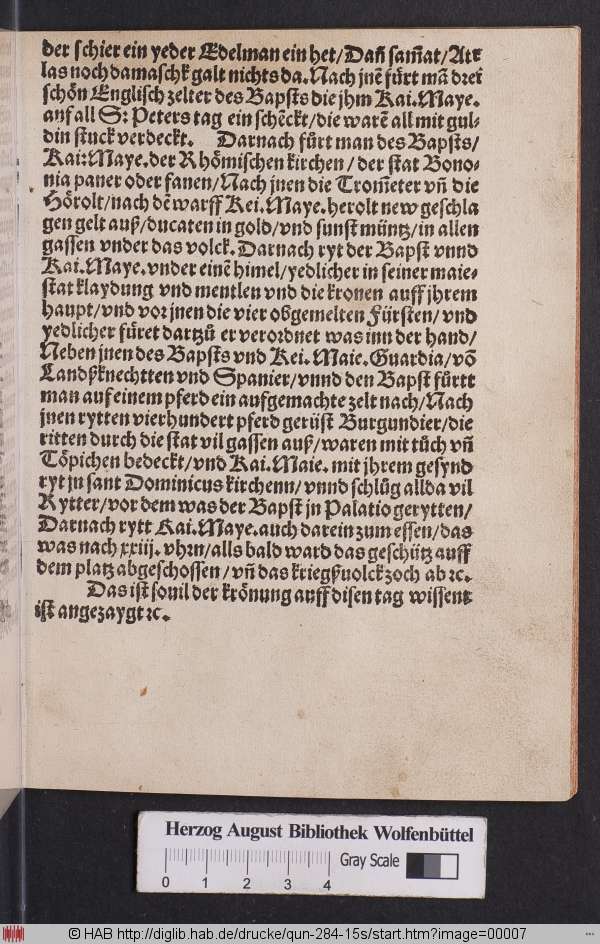 der schier ein yeder Edelman ein het/ Dañ sam̃at/ Att
las noch damaschk galt nichts da. Nach jnẽ fürt mã drei
schön Englisch zelter des Bapsts die jhm Kai. Maye.
auf all S: Peters tag ein schẽckt/ die warẽ all mit gul-
din stuck verdeckt. Darnach fürt man des Bapsts/
Kai: Maye. der Rhömischen kirchen/ der stat Bono-
nia paner oder fanen/ Nach jnen die Trom̃eter vñ die
Hörolt/ nach dẽ warff Kei. Maye. herolt new geschla
gen gelt auß/ ducaten in gold/ vnd sunst müntz/ in allen
gassen vnder das volck. Darnach ryt der Bapst vnnd
Kai. Maye. vnder einẽ himel/ yedlicher in seiner maie-
stat klaydung vnd mentlen vnd die kronen auff jhrem
haupt/ vnd vor jnen die vier obgemelten Fürsten/ vnd
yedlicher füret dartzů er verordnet was inn der hand/
Neben jnen des Bapsts vnd Kei. Maie. Guardia/ võ
Landßknechtten vnd Spanier/ vnnd den Bapst fürtt
man auf einem pferd ein aufgemachte zelt nach/ Nach
jnen rytten vierhundert pferd gerüst Burgundier/ die
ritten durch die stat vil gassen auß/ waren mit tůch vñ
Töpichen bedeckt/ vnd Kai. Maie. mit jhrem gesynd
ryt jn sant Dominicus kirchenn/ vnnd schlůg allda vil
Rytter/ vor dem was der Bapst jn Palatio gerytten/
Darnach rytt Kai. Maye. auch darein zum essen/ das
was nach xxiij. vhrn/ alls bald ward das geschütz auff
dem platz abgeschossen/ vñ das kriegßuolck zoch ab ꝛc.
Das ist souil der krönung auff disen tag wissent
ist angezaygt ꝛc.
Herzog August Bibliothek Wolfenbüttel
Gray Scale
0 1 2 3 4
© HAB http://diglib.hab.de/drucke/qun-284-15s/start.htm?image=00007